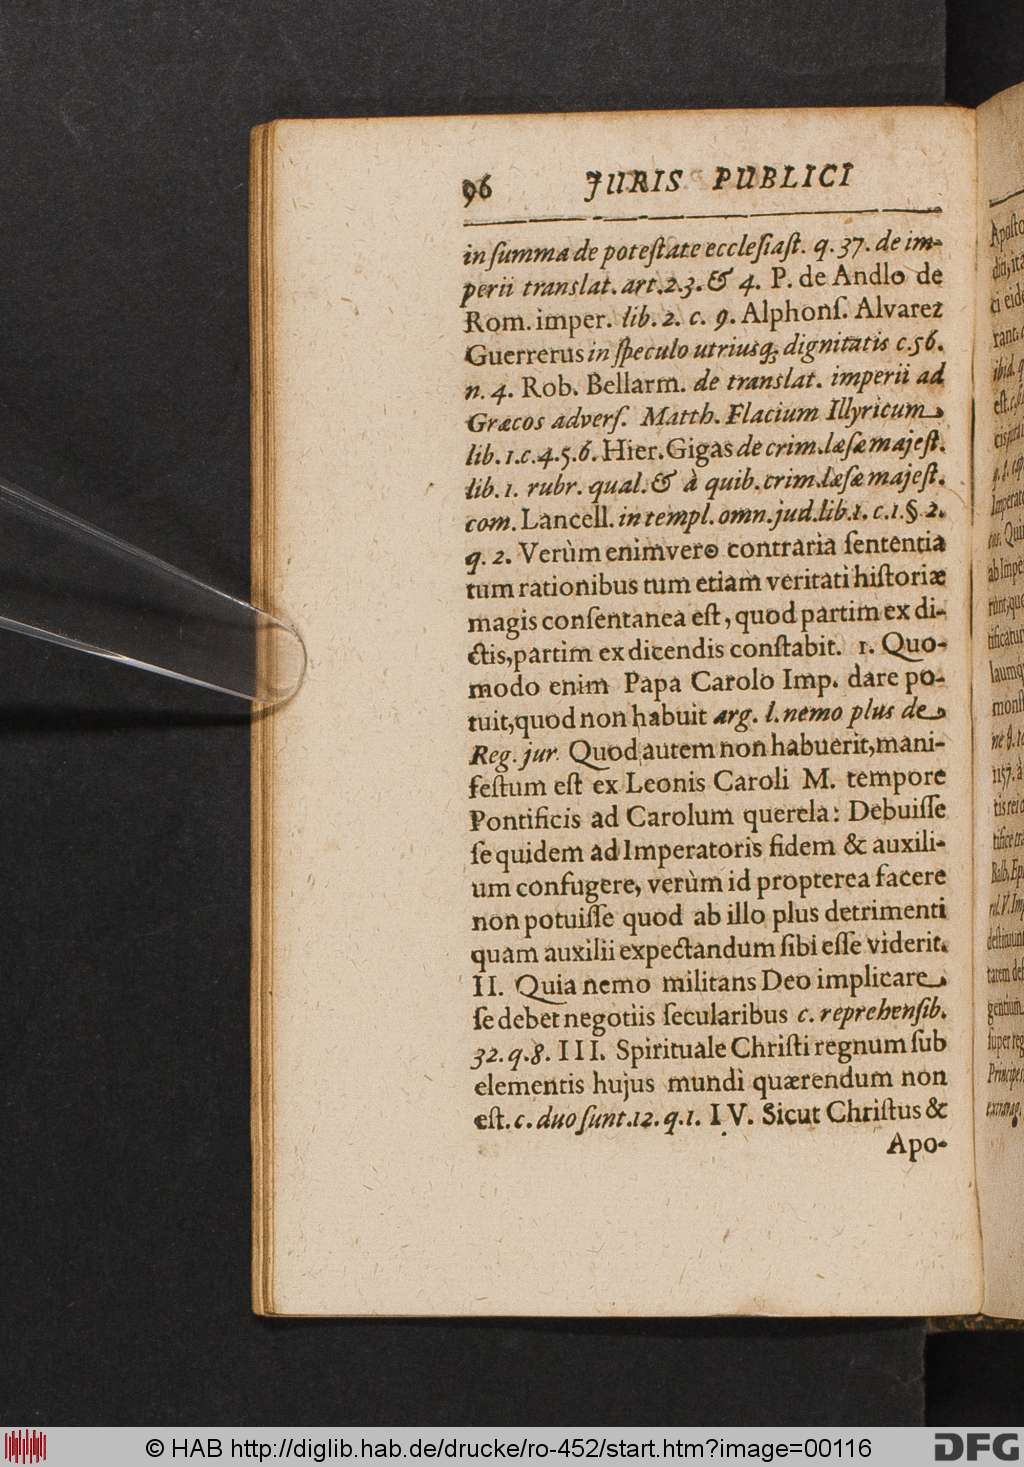 96 JURIS PUBLICI
in ſumma de poteſtate eccleſiaſt. q. 37. de im-
perii translat. art. 2.3. & 4. P. de Andlo de
Rom. imper. lib. 2. c. 9. Alphonſ. Alvarez
Guerrerus in ſpeculo utriusq; dignitatis c. 56.
n. 4. Rob. Bellarm. de translat. imperii ad
Græcos adverſ. Matth. Flacium Illyricum
lib. 1. c. 4. 5. 6. Hier. Gigas de crim. læſæ majeſt.
lib. 1. rubr. qual. & à quib. crim. læſæ majeſt.
com. Lancell. in templ. omn. jud. lib. 1. c. 1. § 2.
q. 2. Verùm enimvero contraria ſententia
tum rationibus tum etiam veritati hiſtoriæ
magis conſentanea eſt, quod partim ex di-
ctis, partim ex dicendis conſtabit. 1. Quo-
modo enim Papa Carolo Imp. dare po-
tuit, quod non habuit arg. l. nemo plus de
Reg. jur. Quod autem non habuerit, mani-
feſtum eſt ex Leonis Caroli M. tempore
Pontificis ad Carolum querela: Debuiſſe
ſe quidem ad Imperatoris fidem & auxili-
um confugere, verùm id propterea facere
non potuiſſe quod ab illo plus detrimenti
quam auxilii expectandum ſibi eſſe viderit.
II. Quia nemo militans Deo implicare
ſe debet negotiis ſecularibus c. reprehenſib.
32. q. 8. III. Spirituale Chriſti regnum ſub
elementis hujus mundi quærendum non
eſt. c. duo ſunt. 12. q. 1. IV. Sicut Chriſtus &
Apo-
© HAB http://diglib.hab.de/drucke/ro-452/start.htm?image=00116
DFG